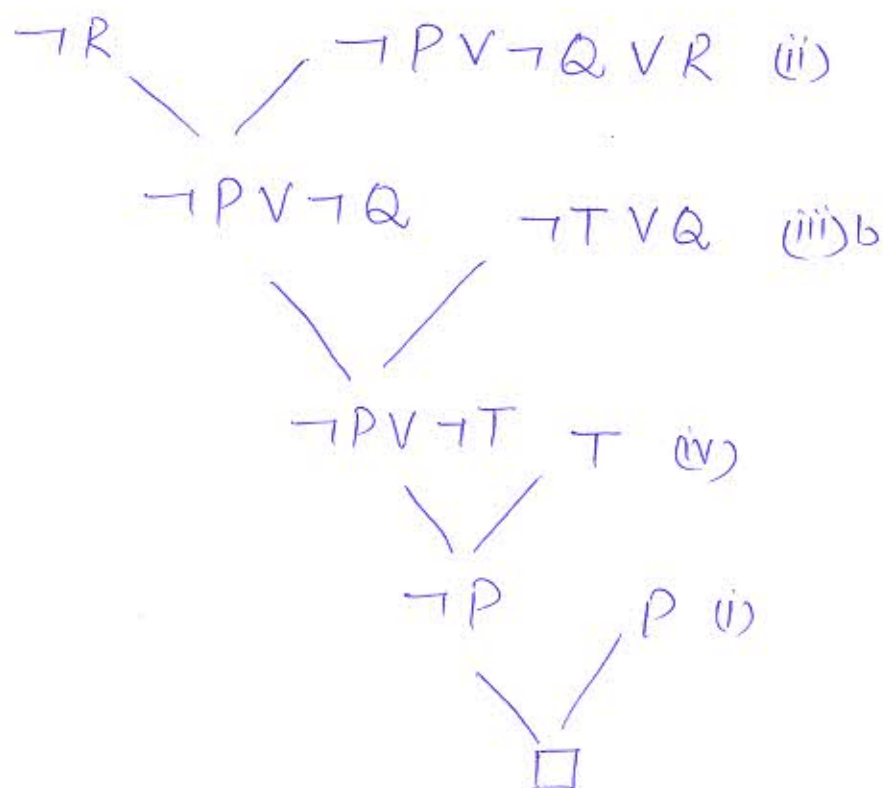 ¬R ¬P V ¬Q V R (ii)
¬P V ¬Q ¬T V Q (iii)b
¬P V ¬T T (iv)
¬P P (i)